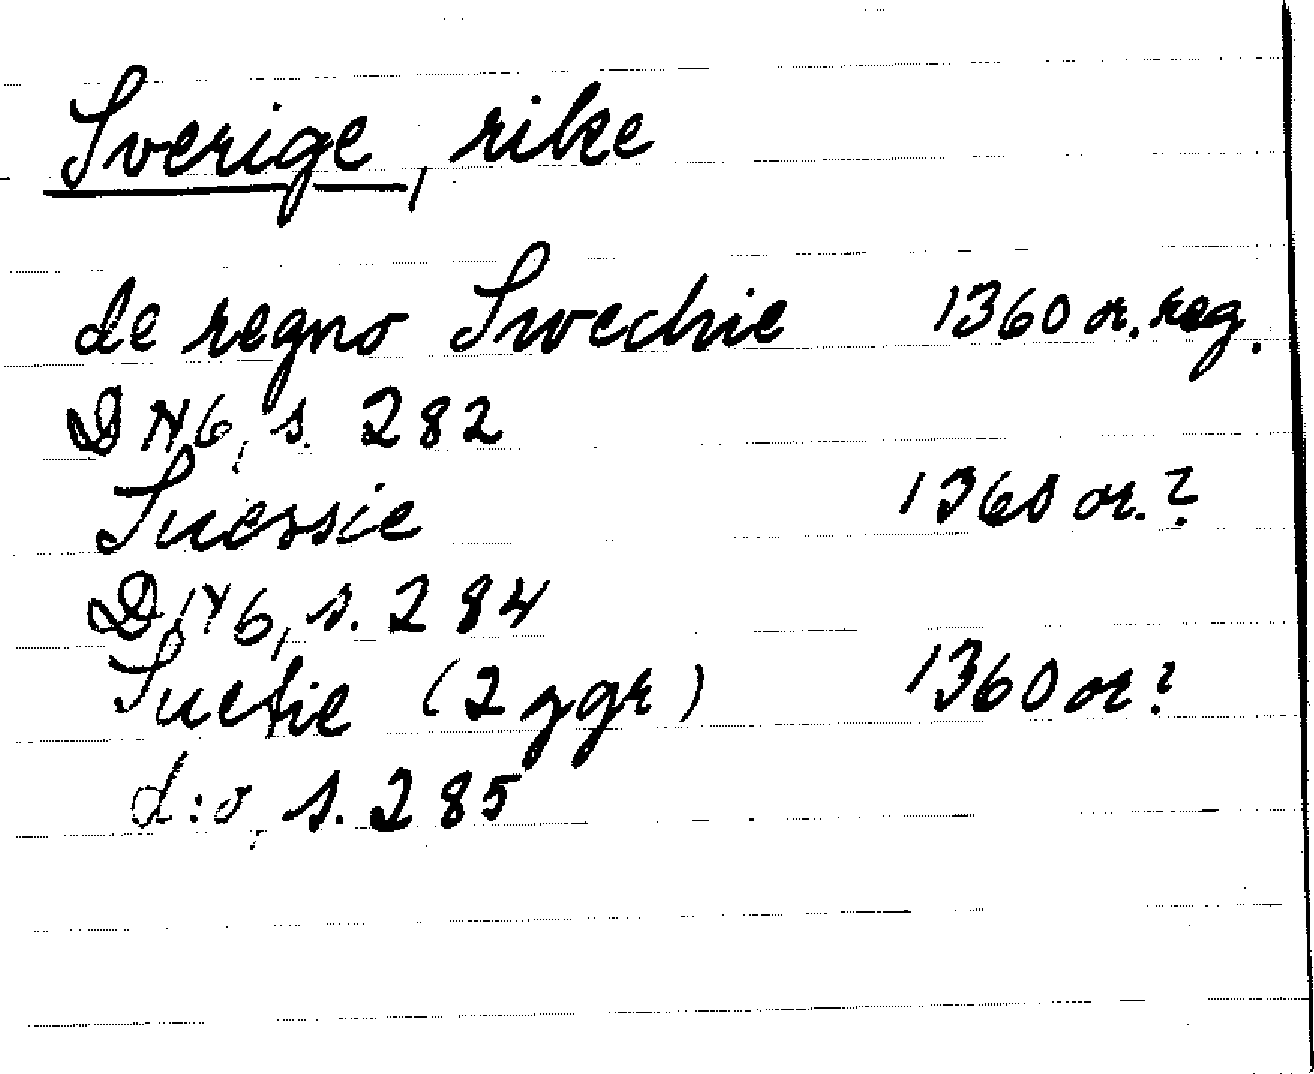 Sverige, rike
de regno Swechie 1360 or. reg.
DN 6, s. 282
Suessie 1360 or.?
DN 6, s. 284
Suetie (2 ggr) 1360 or?
d:o, s. 285